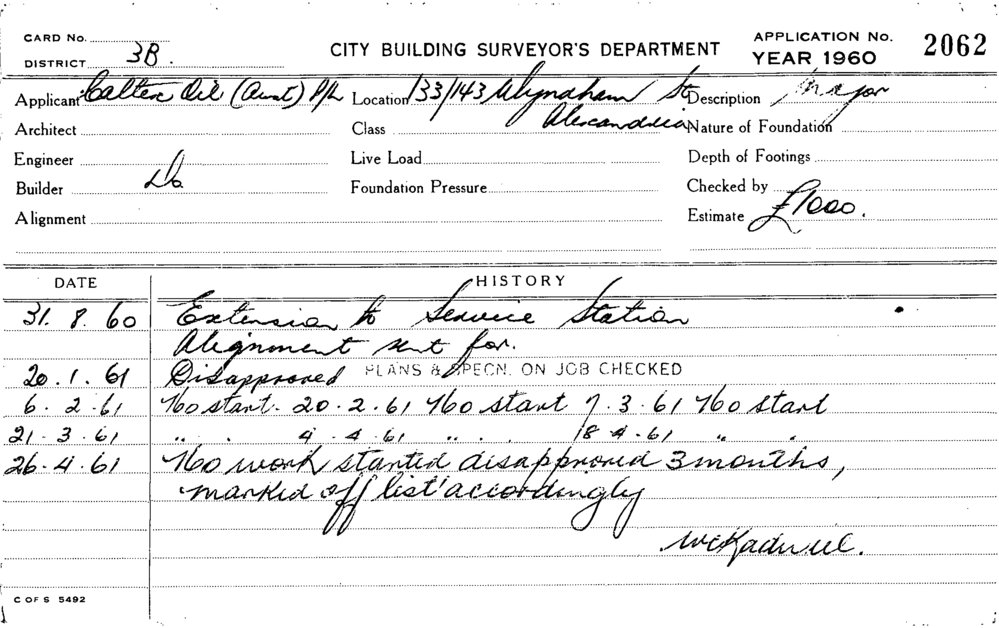 CARD No.
DISTRICT 3B.
CITY BUILDING SURVEYOR'S DEPARTMENT
APPLICATION No. 2062
YEAR 1960
Applicant Caltex Oil (Aust) P/L Location 133/143 Wyndham St Description Major
Architect Class Alexandria Nature of Foundation
Engineer Live Load Depth of Footings
Builder Do Foundation Pressure Checked by
Alignment Estimate £1000.
DATE HISTORY
31. 8. 60 Extension to Service Station
Alignment sent for.
20. 1. 61 Disapproved PLANS & SPECN. ON JOB CHECKED
6. 2. 61 No start. 20. 2. 61 No start 7. 3. 61 No start
21. 3. 61 " . 4. 4. 61 " . 18. 4. 61 " .
26. 4. 61 No work started disapproved 3 months,
marked off list accordingly
C OF S 5492